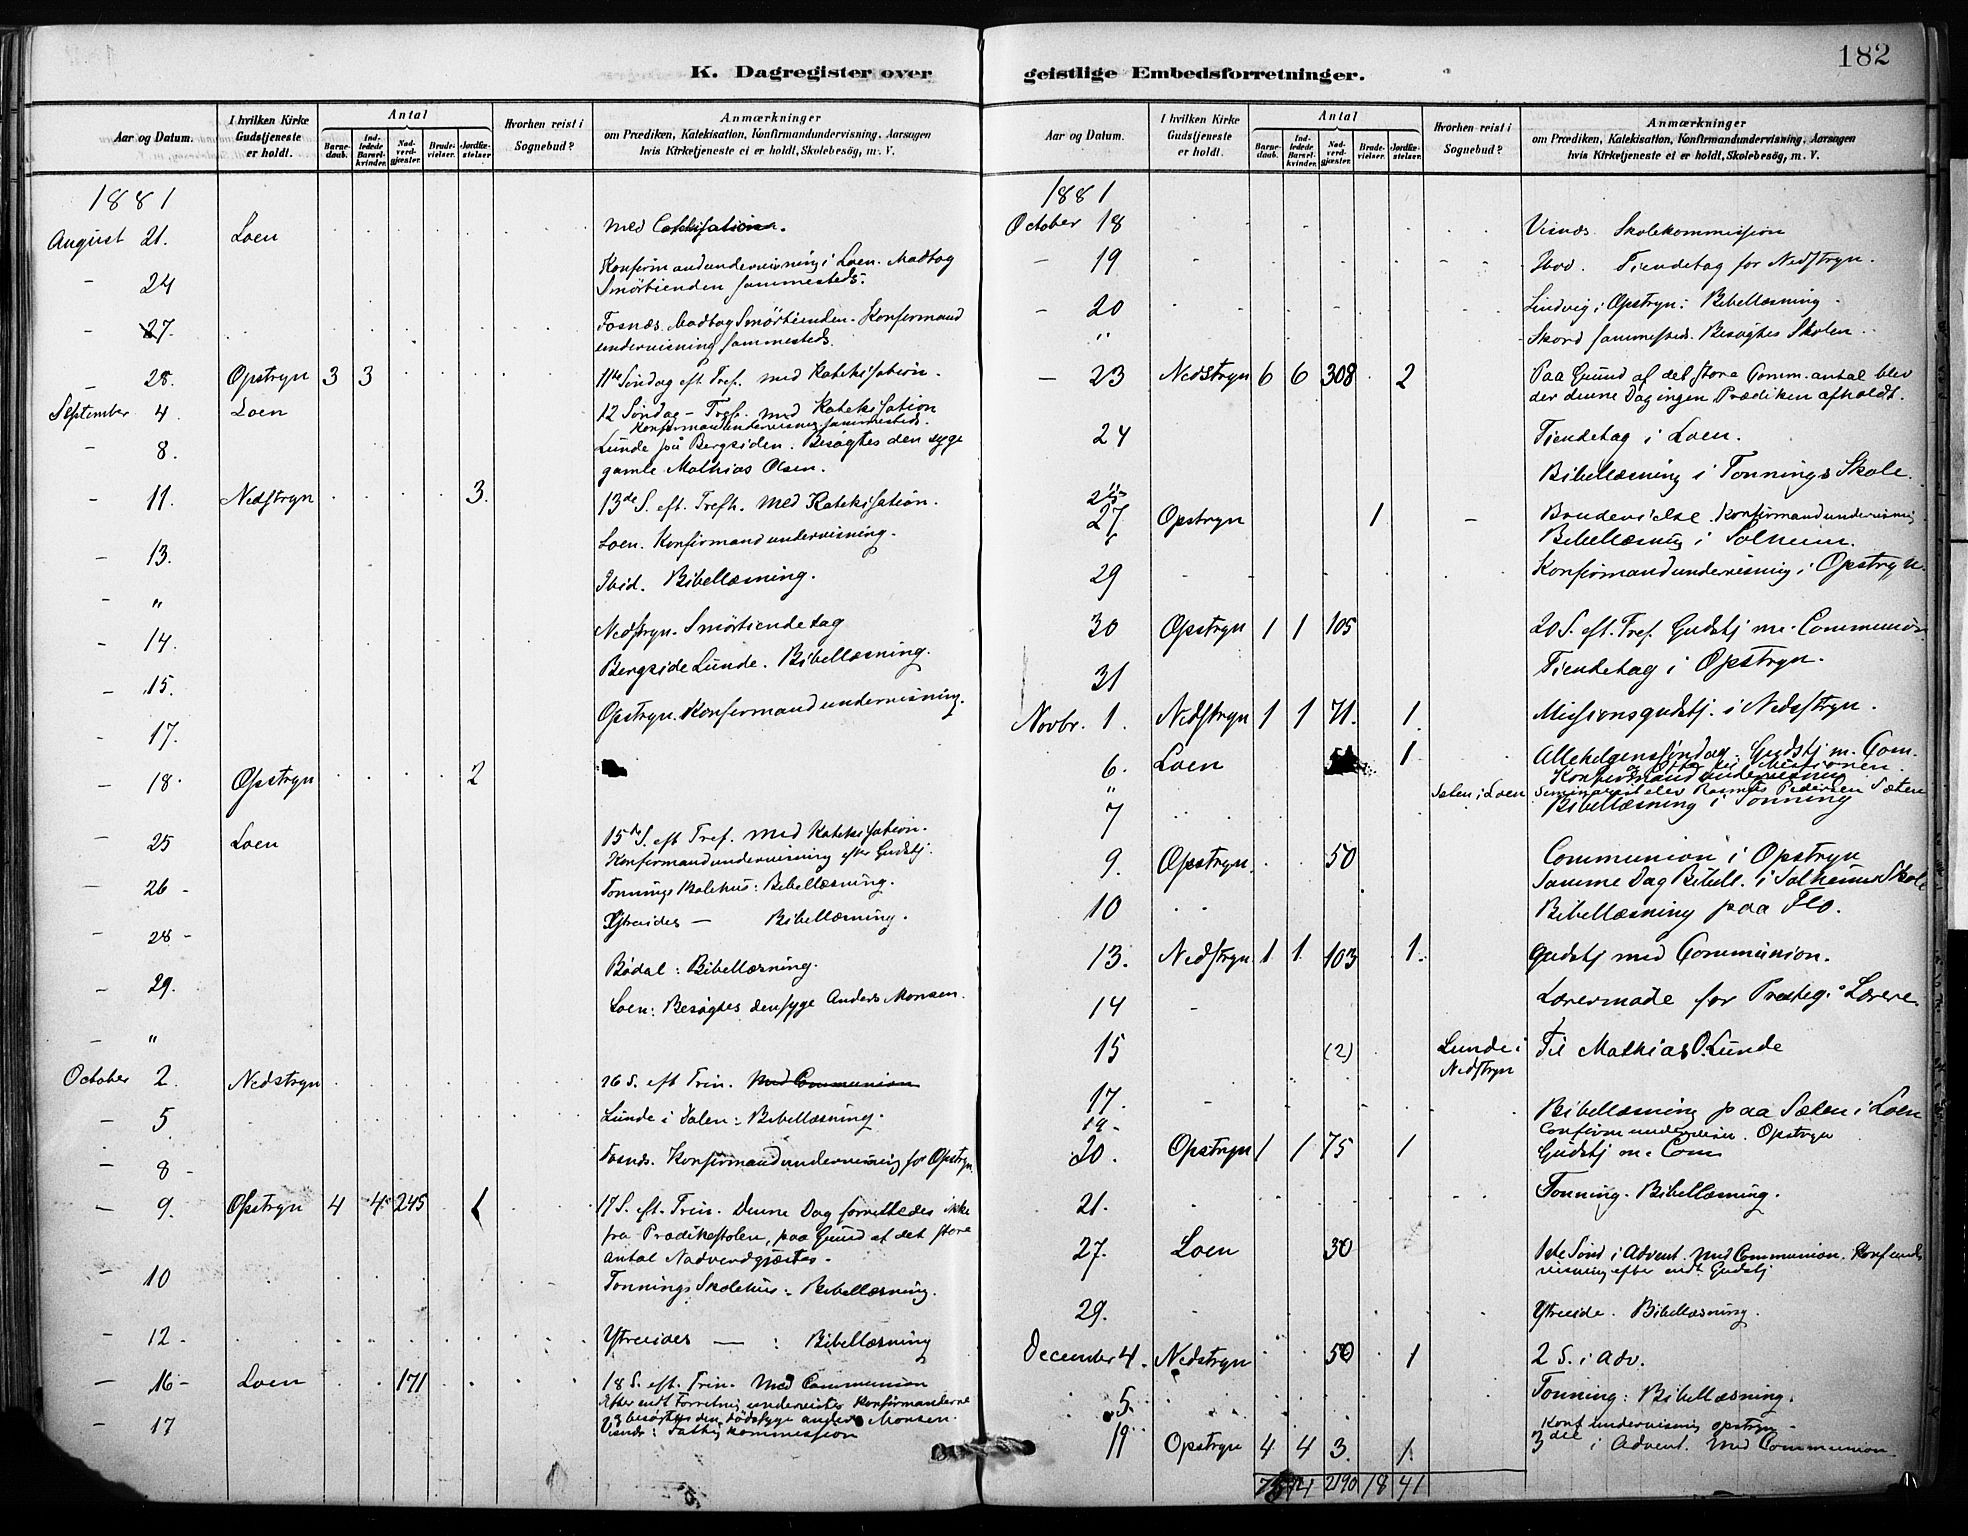 182
K. Dagregister over geistlige Embedsforretninger.
Aar og Datum.
I hvilken Kirke Gudstjeneste er holdt.
Antal
Barne-daab.
Ind-ledede Barsel-kvinder.
Nad-verd-gjæster.
Brude-vielser.
Jordfæ-stelser
Hvorhen reist i Sognebud?
Anmærkninger
om Prædiken, Katekisation, Konfirmandundervisning, Aarsagen
hvis Kirketjeneste ei er holdt, Skolebesög, m. V.
1881
August 21. Loen med Catekisation.
- 24 Konfirmandundervisning i Loen. Madtog
Smörtienden sammesteds.
- 27. Fosnæs. Madtog Smörtienden. Konfirmand
undervisning sammesteds.
- 28. Opstryn 3 3 11te Söndag eft. Tref. med Katekisation.
September 4. Loen 12 Söndag - Tref. med Katekisation
Konfirmandundervisning sammesteds.
- 8. Lunde på Bergsiden. Besøgtes den syge
gamle Mathias Olsen.
- 11. Nedstryn 3. 13de S. eft. Trefh. med Katekisation.
- 13. Loen. Konfirmandundervisning.
- " Ibid. Bibellæsning.
- 14. Nedstryn. Smörtiendetag
- 15. Bergside Lunde. Bibellæsning.
- 17. Opstryn. Konfirmandundervisning.
- 18. Opstryn 2
- 25 Loen 15de S. eft Tref. med Katekisation.
Konfirmandundervisning efter Gudstj.
- 26 - Tonnings Skolehus: Bibellæsning.
- 28 - Ytreides — Bibellæsning.
- 29. Bödal: Bibellæsning.
- " Loen: Besøgtes den syge Anders Monsen.
October 2. Nedstryn 16 S. eft Trin. Med Communion
- 5. Lunde i Dalen: Bibellæsning.
- 8 - Fosnæs. Konfirmandundervisning for Opstryn
- 9. Opstryn 4 4 245 1 17 S. eft. Trin. Denne Dag forrettedes ikke
fra Prædikestolen, paa Grund af det store
antal Nadverdgjæster.
- 10 Tonnings Skolehus: Bibellæsning.
- 12 - Ytreides — : Bibellæsning
- 16 - Loen 171 18 S. eft. Trin. Med Communion
Efter endt Forretning undervistes Konfirmanderne
og besøgtes den dödssyge Anders Monsen.
- 17 Visnæs: Fattigkommission
Aar og Datum.
I hvilken Kirke Gudstjeneste er holdt.
Antal
Barne-daab.
Ind-ledede Barsel-kvinder.
Nad-verd-gjæster.
Brude-vielser.
Jordfæ-stelser.
Hvorhen reist i Sognebud?
Anmærkninger
om Prædiken, Katekisation, Konfirmandundervisning, Aarsagen
hvis Kirketjeneste ei er holdt, Skolebesög, m. V.
1881
October 18 Visnæs. Skolekommission
- 19 Tiendetag for Nedstryn.
- 20 Lindvig i Opstryn: Bibellæsning.
" Skord sammesteds. Besøgtes Skolen.
- 23 Nedstryn 6 6 308 2 Paa Grund af det store Comm. antal blev
der denne Dag ingen Prædiken afholdt.
24 Tiendetag i Loen.
25 Bibellæsning i Tonnings Skole.
27 Opstryn 1 - Brudevielse. Konfirmandundervisning
" Bibellæsning i Solheim.
29 Konfirmandundervisning i Opstryn.
30 Opstryn 1 1 105 20 S. eft. Tref. Gudstj m. Communion
31 Tiendetag i Opstryn.
Novbr. 1. Nedstryn 1 1 71. 1. Missionsgudstj. i Nedstryn.
6. Loen 1 Allehelgenssöndag. Gudstj m. Com.
Missionen.
Konfirmandundervisning
" Sæten i Loen Seminarist elev Rasmus Pedersen Sæten
7 Bibellæsning i Tonning
9. Opstryn. 50 Communion i Opstryn
Samme Dag Bibell. i Solheims Skole
10 Bibellæsning paa Flo.
13. Nedstryn 1 1. 103 1. Gudstj med Communion.
14 - Lærermøde for Prestegj. Lærere.
15 (2) Lunde i Nedstryn Til Mathias O. Lunde
17. - Bibellæsning paa Sæten i Loen
19 - Opstryn
20. Opstryn 1 1 75 1 Gudstj m. Com
21. Tonning. Bibellæsning.
27. Loen 30 1ste Sönd i Advent. Med Communion. Konf und
visning efter endt Gudstj
29. Ytreeide. Bibellæsning.
December 4. Nedstryn 50 1 2 S. i Adv.
5. Tonning: Bibellæsning.
Konf undervisning Opstryn -
Opstryn 4 4 3. 1. 3die i Advent. Med Communion
2190 18 41